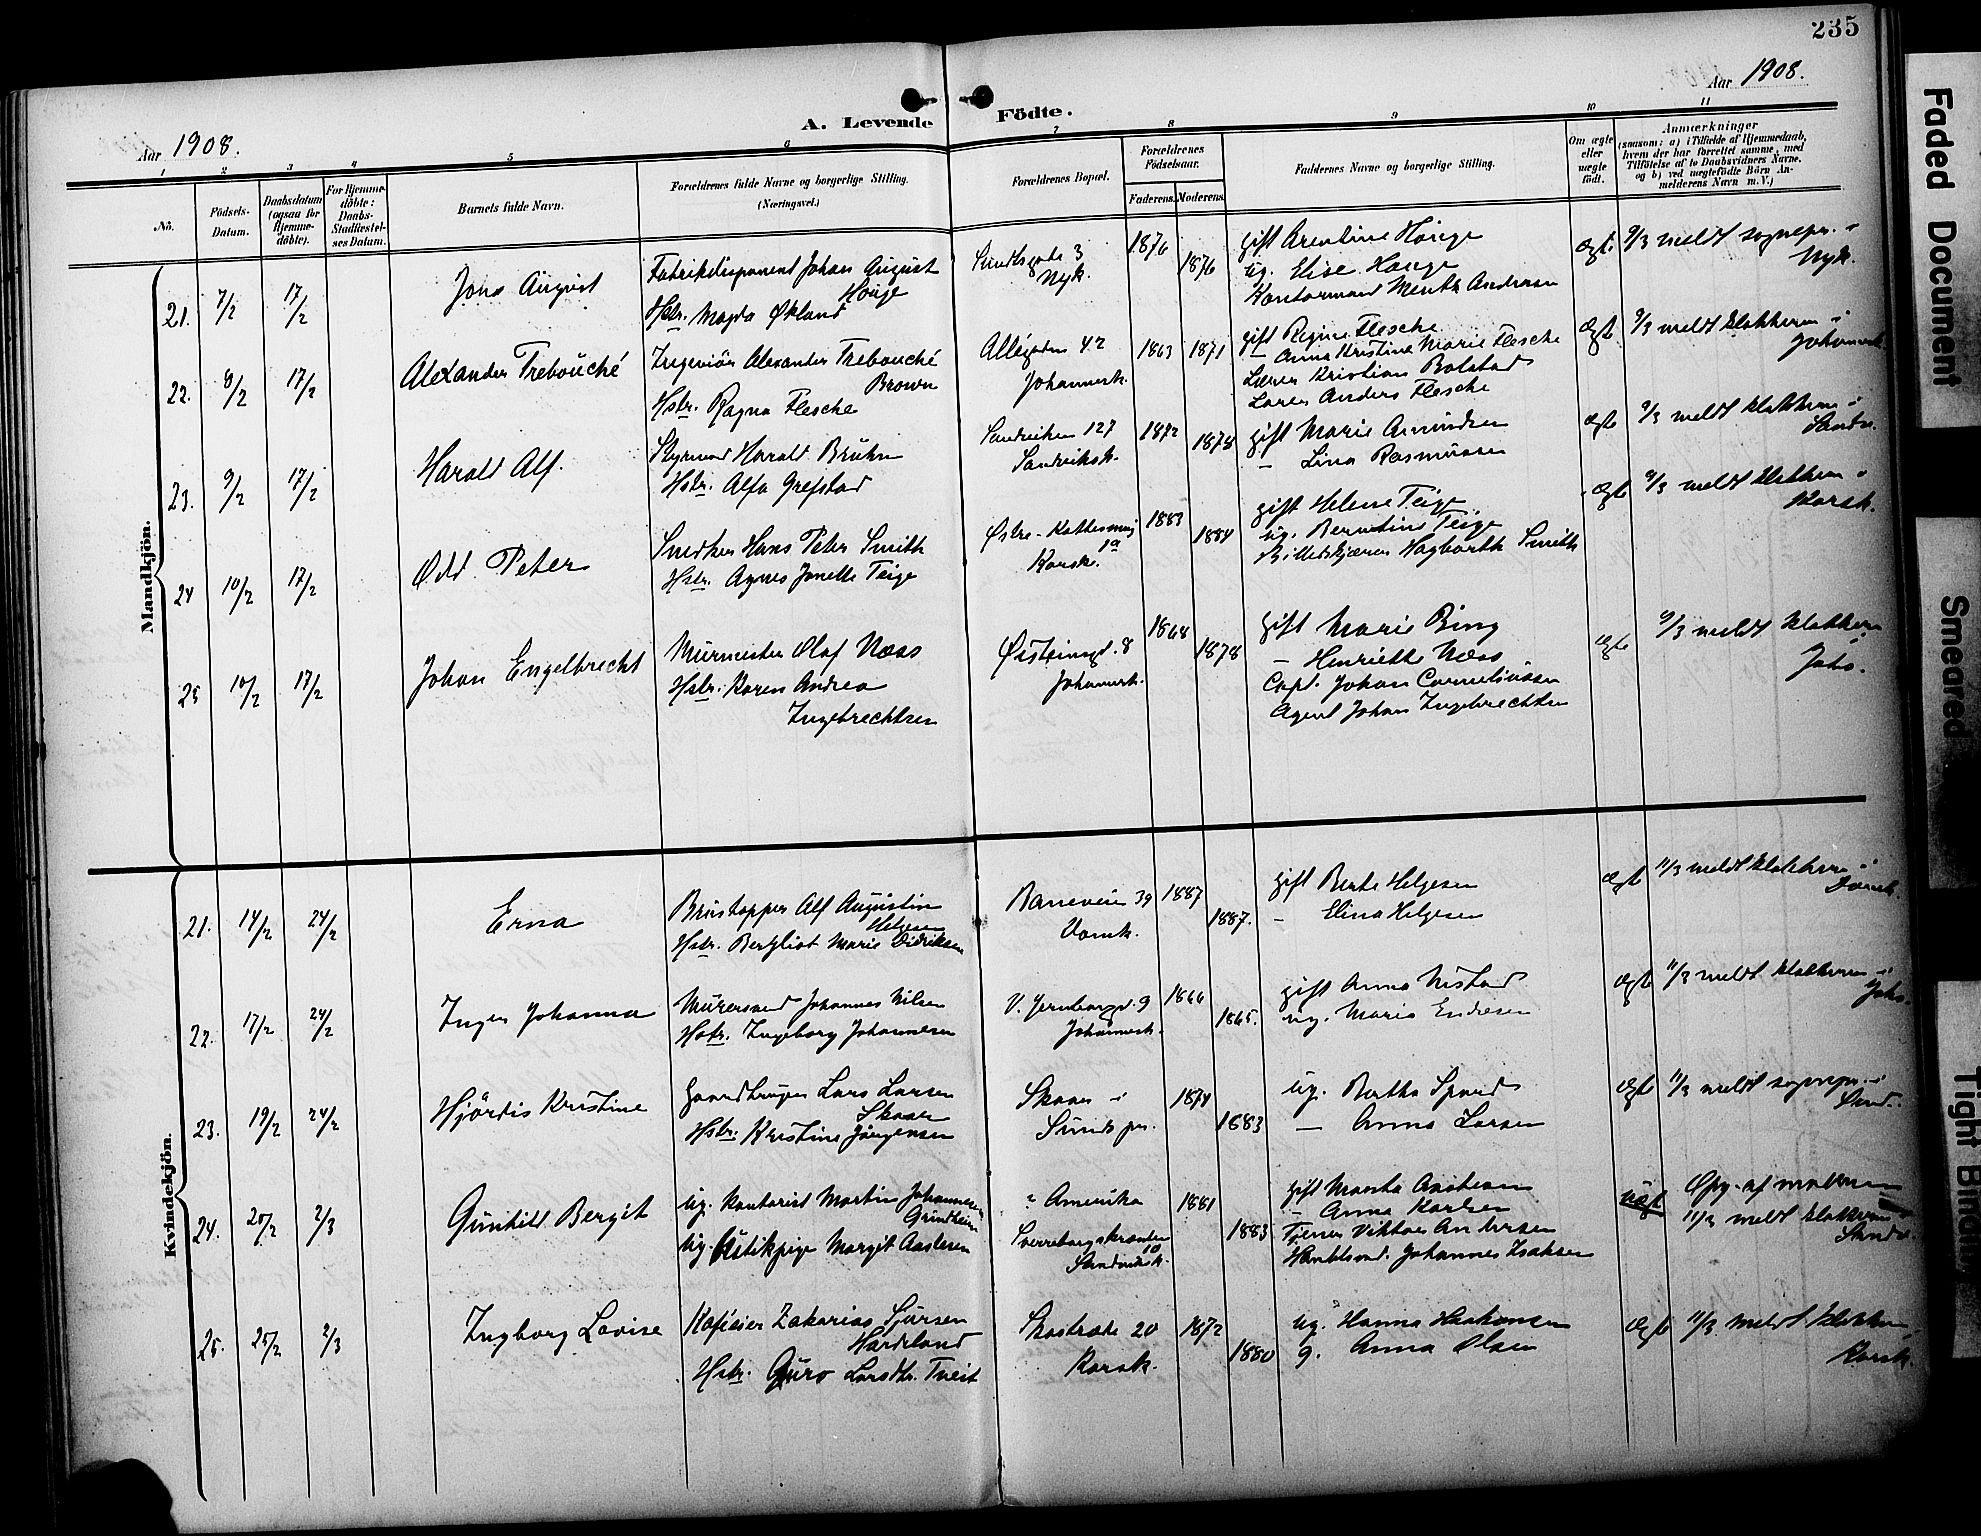 235
Aar 1908.
A. Levende Födte.
Aar 1908.
1 2 3 4 5 6 7 8 9 10 11
No.
Födsels-Datum.
Daabsdatum (ogsaa for Hjemme-döbte).
For Hjemme-döbte: Daabs-Stadfæstel-ses Datum.
Barnets fulde Navn.
Forældrenes fulde Navne og borgerlige Stilling. (Næringsvei.)
Forældrenes Bopæl.
Forældrenes Födselsaar.
Faderens. Moderens.
Faddernes Navne og borgerlige Stilling.
Om ægte eller uægte födt.
Anmærkninger
(saasom: a) i Tilfælde af Hjemmedaab, hvem der har forrettet samme, med Tilföielse af to Daabsvidners Navne, og b) ved uægtefödte Börn An-melderens Navn m. V.)
Mandkjön.
21. 7/2 17/2
Jons August
Fabrikdisponent Johan August
Hauge
Hstr. Magda Økland
3
Nyk.
1876 1876
gift Arentine Hauge
ug. Elise Hauge
Kontormand Andreasen
Ægte
9/3 meldt sognepr. i
Nyk.
22. 8/2 17/2
Alexander Trebouché
Ingeniör Alexander Trebouché
Brown
Hstr. Ragna Flesche
Allégaden 42
Johannesk.
1863 1871
gift Regine Flesche
- Anna Kristina Marie Flesche
Lærer Kristian Bolstad
Anders Flesche
Ægte
9/3 meldt klokkeren i
Johannesk.
23. 9/2 17/2
Harald Alf.
Styrmand Harald Bruhn
Hstr. Alfa Grefstad
Sandviken 127
Sandviksk.
1872 1878
gift Marie Amundsen
- Lina Rasmussen
Ægte
9/3 meldt klokkeren i
Sandv.
24 10/2 17/2
Odd Peter
Snedker Hans Peter Smith
Hstr. Agnes Jonette Teige
Østre-
1a
Korsk.
1883 1884
gift Helene Teige
ug. Berntine Teige
Billedskjærer Hagbarth Smith
Ægte
9/3 meldt klokkeren i
Korsk.
25 10/2 17/2
Johan Engelbrecht
Murmester Olaf Næss
Hstr. Karen Andrea
Ingebrechtsen
Øisteinsgd. 8
Johannesk.
1868 1878
gift Marie Bing
- Henriette Næss
Capt. Johan Corneliussen
Agent Johan Ingebrechtsen
Ægte
9/3 meldt klokkeren
Johs.
Kvindekjön.
21. 14/2 24/2
Erna
Brustapper Alf Augustin
Helgesen
Hstr. Bergliot Marie Didriksen
39
Domk.
1887 1887.
gift Berte Helgesen
- Elina Helgesen
Ægte
11/3 meldt klokkeren i
Domk.
22. 17/2 24/2
Inger Johanna
Murersvend Johannes Nilsen
Hstr. Ingeborg Johannesen
V. 9
Johannesk.
1866 1865.
gift Anna Nistad
ug. Marie Endresen
Ægte
11/3 meldt klokkeren i
Johs.
23. 19/2 24/2
Hjördis Kristine
Gaardbruger Lars Larsen
Skaar
Hstr. Kristine Jörgensen
Skaar i
Sunds pr.
1874 1883
ug. Bertha
- Anna Larsen
Ægte
11/3 meldt sognepr. i
Sund.
24. 20/2 2/3
Gunhild Bergit
ug. kontorist Martin Johannesen
Grindheim
ug. Margit Aadesen
i Amerika
Sverreborgskranden
10
Sandviksk.
1881 1883
gift
- Anna Karlsen
Tjener Viktor Andersen
Johannes Isaksen
Uægte
Opg. af moderen
11/3 meldt klokkeren i
Sandv.
25. 25/2 2/3
Ingborg Lovise
Zakarias Sjursen
Hardeland
Hstr. Guro Larsdtr. Tveit
20
Korsk.
1872 1880
ug. Hanna Haakonsen
g. Anna Olsen
Ægte
11/3 meldt klokkeren
Korsk.
Faded Document
Smeared
Tight Binding